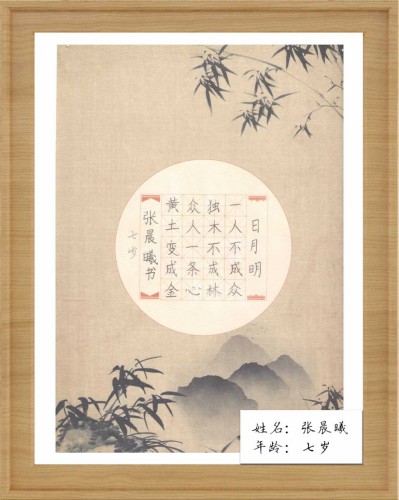 日月明
一人不成众
独木不成林
众人一条心
黄土变成金
张晨曦书
七岁
姓名：张晨曦
年龄：七岁